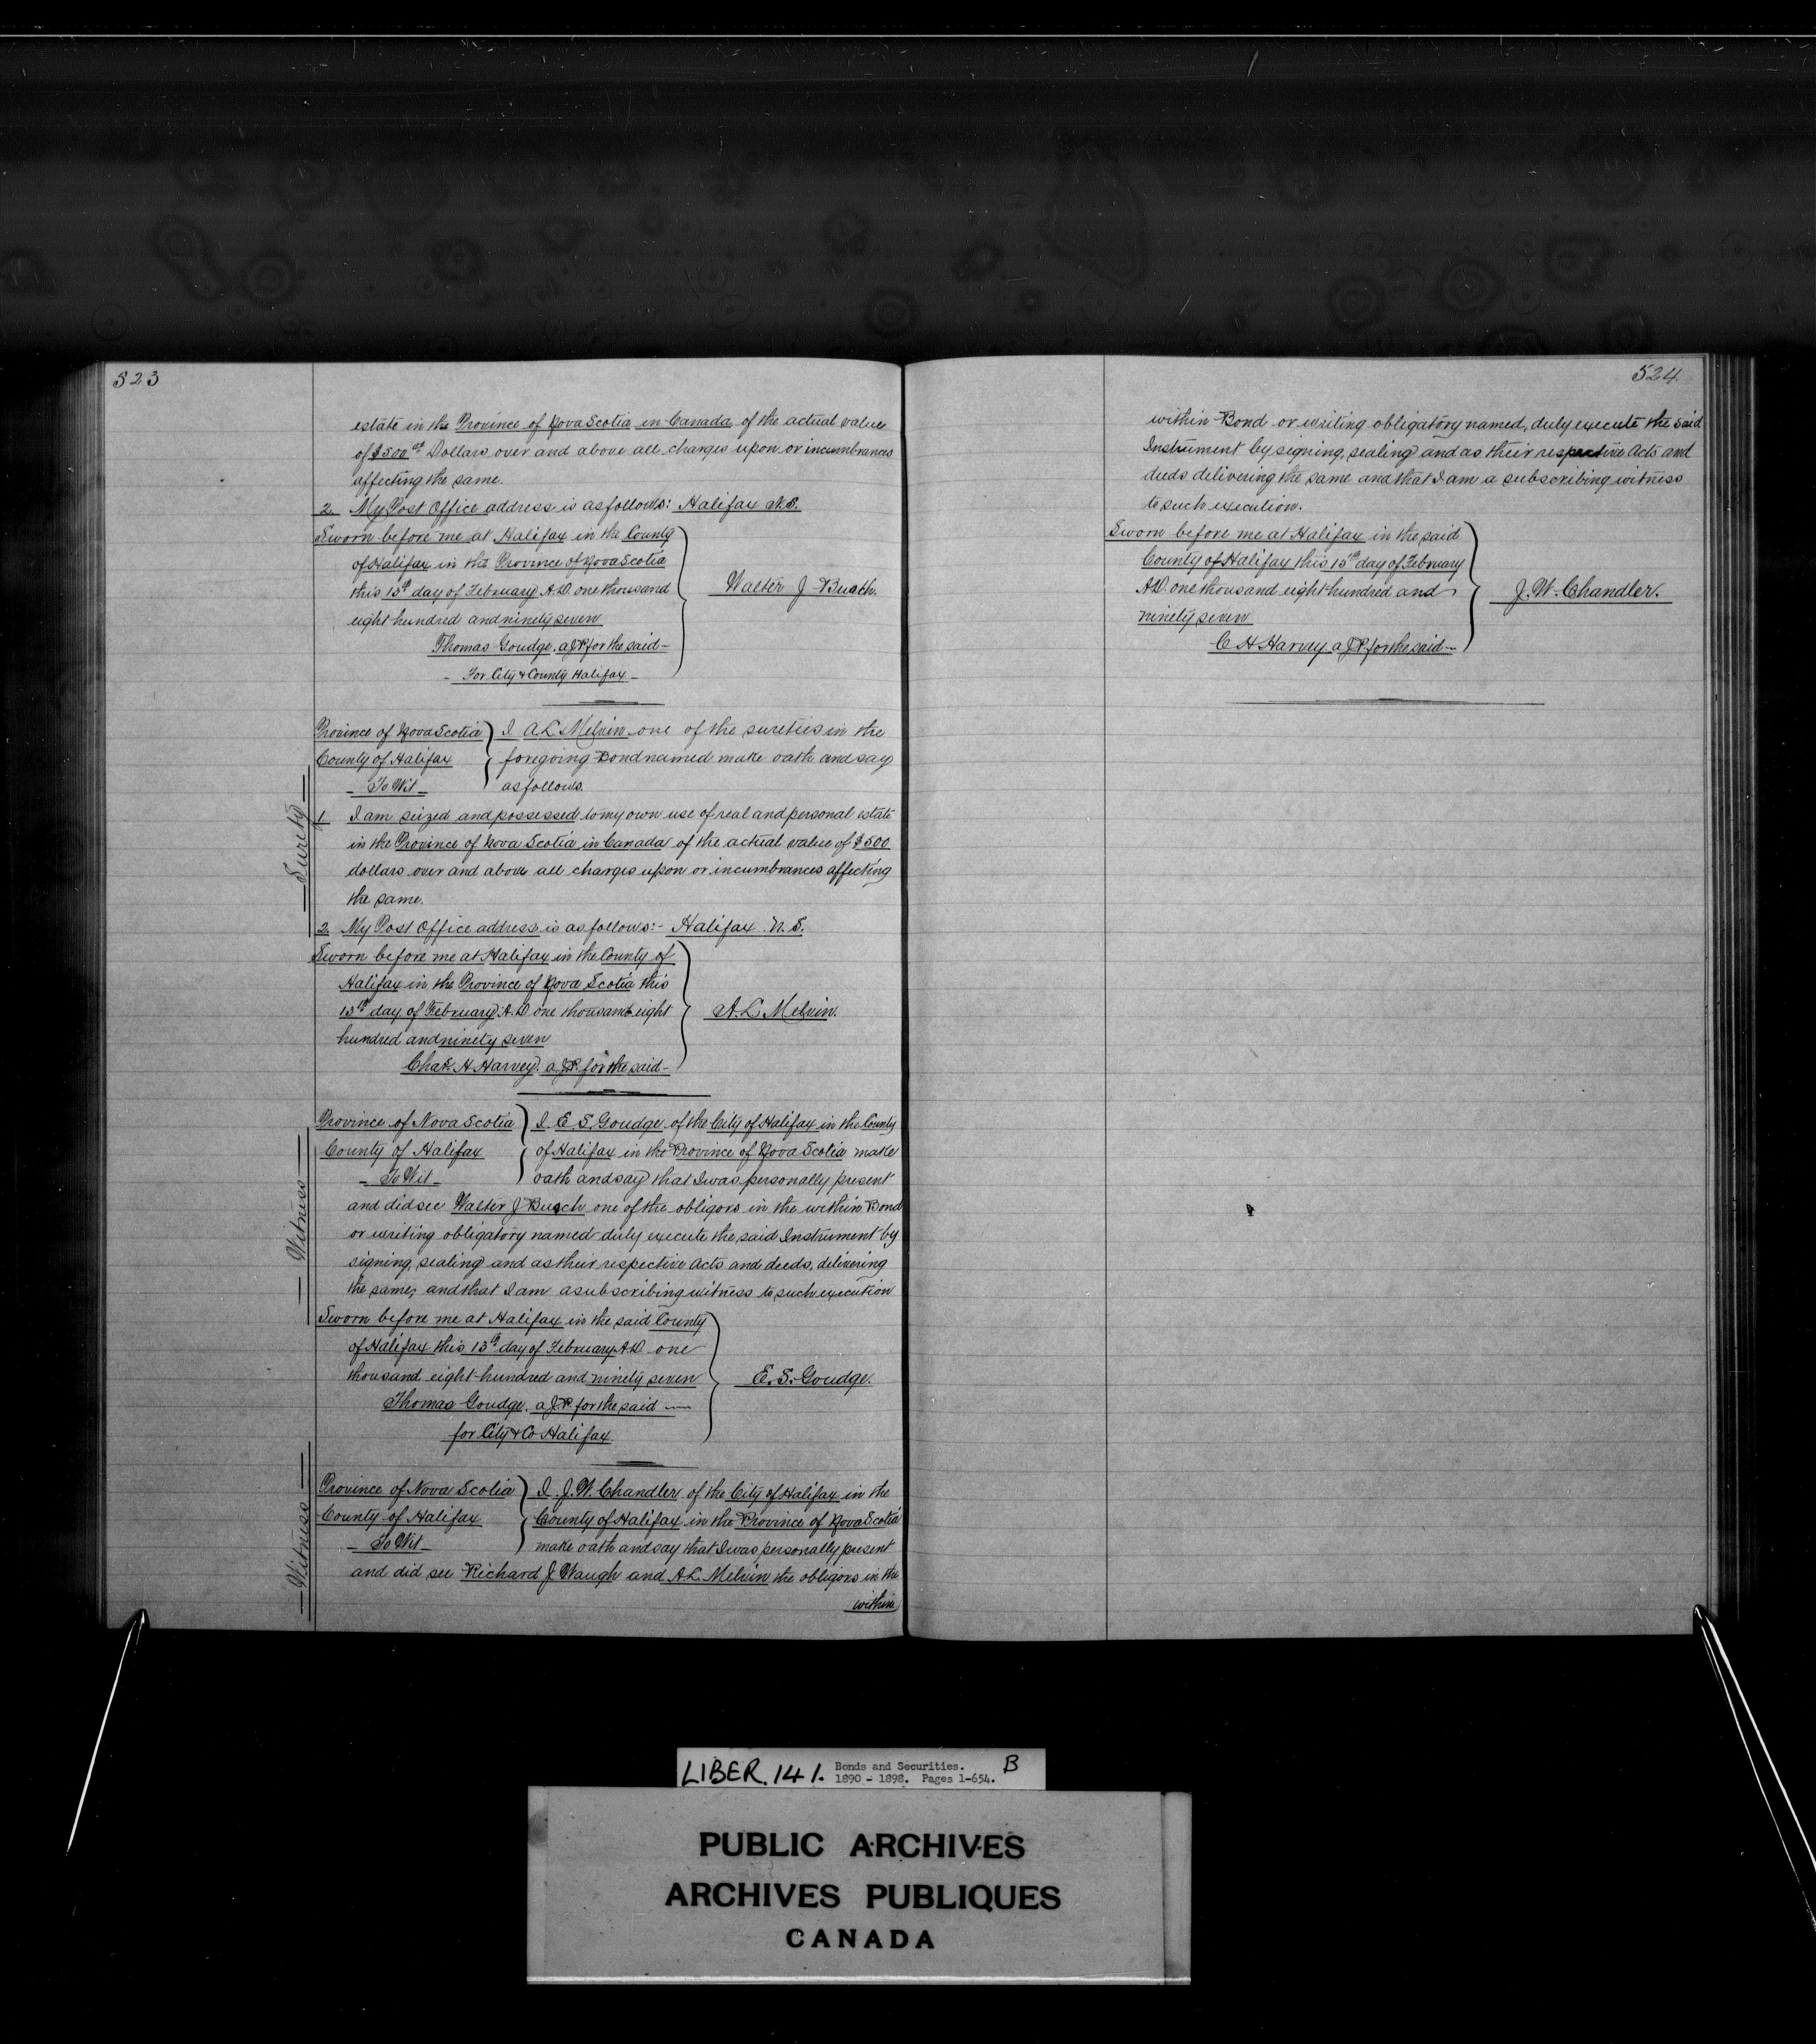 523
estate in the Province of Nova Scotia in Canada of the actual value
of $500 Dollars over and above all charges upon or incumbrances
affecting the same.
2. My Post Office address is as follows: Halifax N.S.
Sworn before me at Halifax in the County
of Halifax in the Province of Nova Scotia
this 13th day of February A.D. one thousand
eight hundred and ninety seven
Thomas Goudge, a J.P. for the said —
— For City & County Halifax —
Walter J Busch.
Province of Nova Scotia
County of Halifax
— To Wit —
I A L Melvin one of the sureties in the
foregoing Bond named make oath and say
as follows.
Surety
1. I am seized and possessed to my own use of real and personal estate
in the Province of Nova Scotia in Canada of the actual value of $500
dollars over and above all charges upon or incumbrances affecting
the same.
2. My Post Office address is as follows:- Halifax N.S.
Sworn before me at Halifax in the County of
Halifax in the Province of Nova Scotia this
13th day of February A.D. one thousand eight
hundred and ninety seven
Chas. H Harvey. a J.P. for the said —
A. L Melvin.
Province of Nova Scotia
County of Halifax
— To Wit —
I. E S. Goudge of the City of Halifax in the County
of Halifax in the Province of Nova Scotia make
oath and say that I was personally present
Witness
and did see Walter J Busch one of the obligors in the within Bond
or writing obligatory named duly execute the said Instrument by
signing, sealing and as their respective acts and deeds, delivering
the same, and that I am a subscribing witness to such execution
Sworn before me at Halifax in the said County
of Halifax this 13th day of February A.D. one
thousand eight hundred and ninety seven
Thomas Goudge. a J.P. for the said —
for City & Co Halifax
E. S. Goudge.
Province of Nova Scotia
County of Halifax
— To Wit —
I. J. W. Chandler of the City of Halifax in the
County of Halifax in the Province of Nova Scotia
make oath and say that I was personally present
Witness
and did see Richard J Waugh and A L. Melvin the obligors in the
within
524
within Bond or writing obligatory named, duly execute the said
Instrument by signing, sealing and as their respective Acts and
deeds delivering the same and that I am a subscribing witness
to such execution.
Sworn before me at Halifax in the said
County of Halifax this 13th day of February
A.D. one thousand eight hundred and
ninety seven
C H Harvey a J.P. for the said —
J. W. Chandler.
LIBER. 141. Bonds and Securities. B
1890 - 1898. Pages 1-654.
PUBLIC ARCHIVES
ARCHIVES PUBLIQUES
CANADA